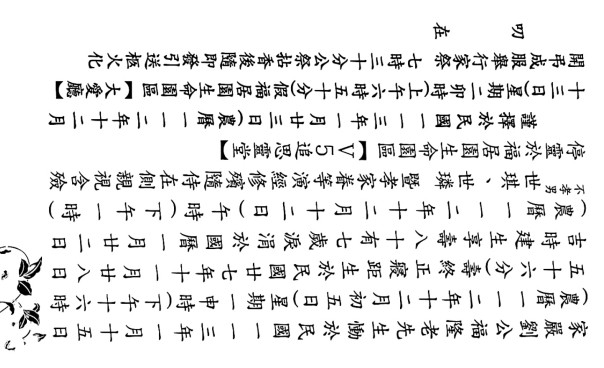 家嚴劉公福隆老先生慟於民國一一三年一月十五日
(農曆一一二年十二月初五日)星期一申時(下午十六時
五十六分)壽終正寢距生於民國廿七年十一月廿八日
吉時建生享壽八十有七歲淚涓於國曆一月廿二日
(農曆一一二年十二月十二日)午時(下午一時)
不孝男世琪、世璘暨孝家眷等演經修殯隨侍在側親視含殮
停靈於福居園生命園區【V5追思靈堂】
謹擇於民國一一三年一月廿三日(農曆一一二年十二月
十三日)星期二卯時(上午六時五十分)假福居園生命園區【大愛廳】
開弔成服舉行家祭七時三十分公祭拈香後隨即發引送柩火化
叨在